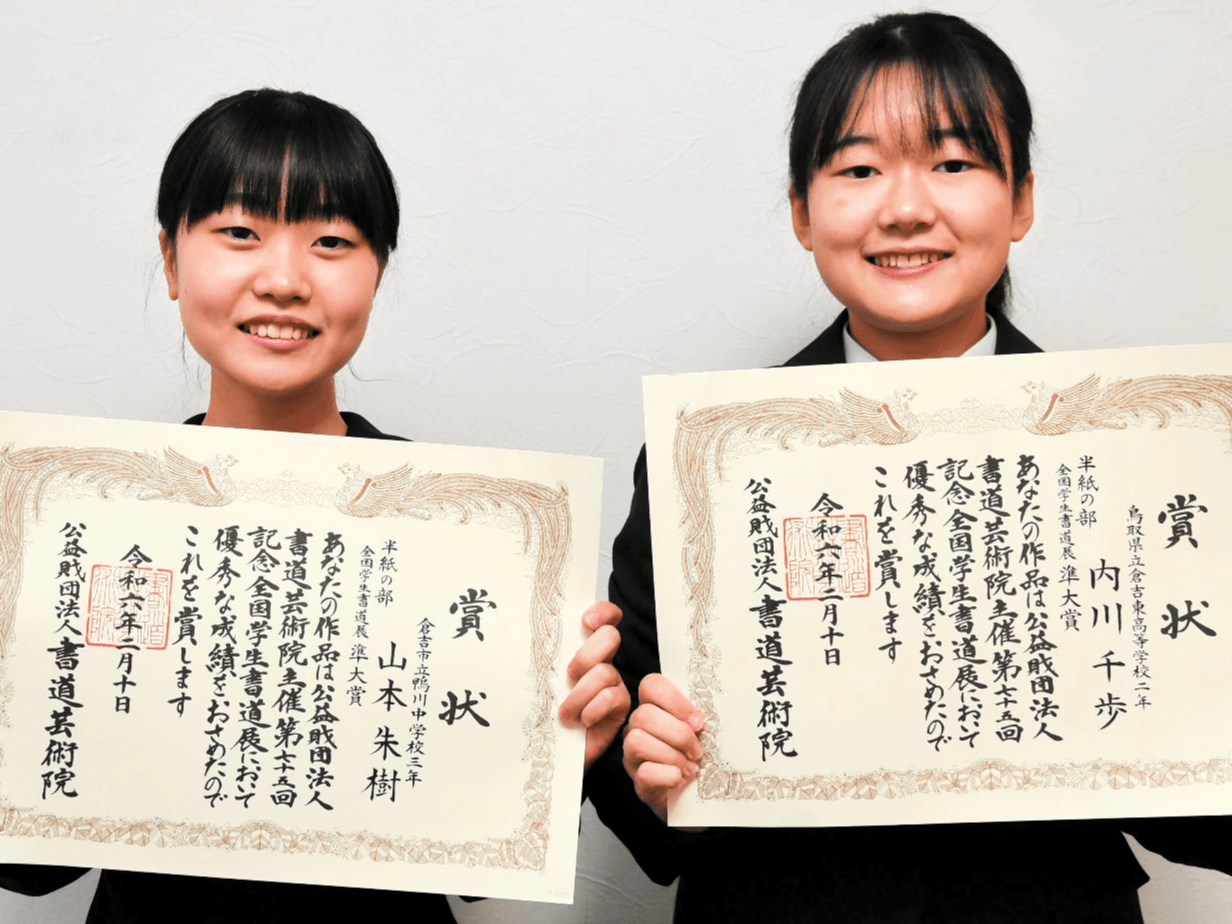 賞状
倉吉市立鴨川中学校三年
山本朱樹
半紙の部
全国学生書道展 準大賞
あなたの作品は公益財団法人
書道芸術院主催第七十五回
記念全国学生書道展において
優秀な成績をおさめたので
これを賞します
令和六年二月十日
公益財団法人書道芸術院
賞状
鳥取県立倉吉東高等学校二年
内川千歩
半紙の部
全国学生書道展 準大賞
あなたの作品は公益財団法人
書道芸術院主催第七十五回
記念全国学生書道展において
優秀な成績をおさめたので
これを賞します
令和六年二月十日
公益財団法人書道芸術院